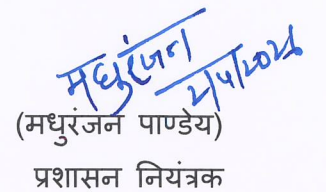 मधुरंजन
(मधुरंजन पाण्डेय)
प्रशासन नियंत्रक